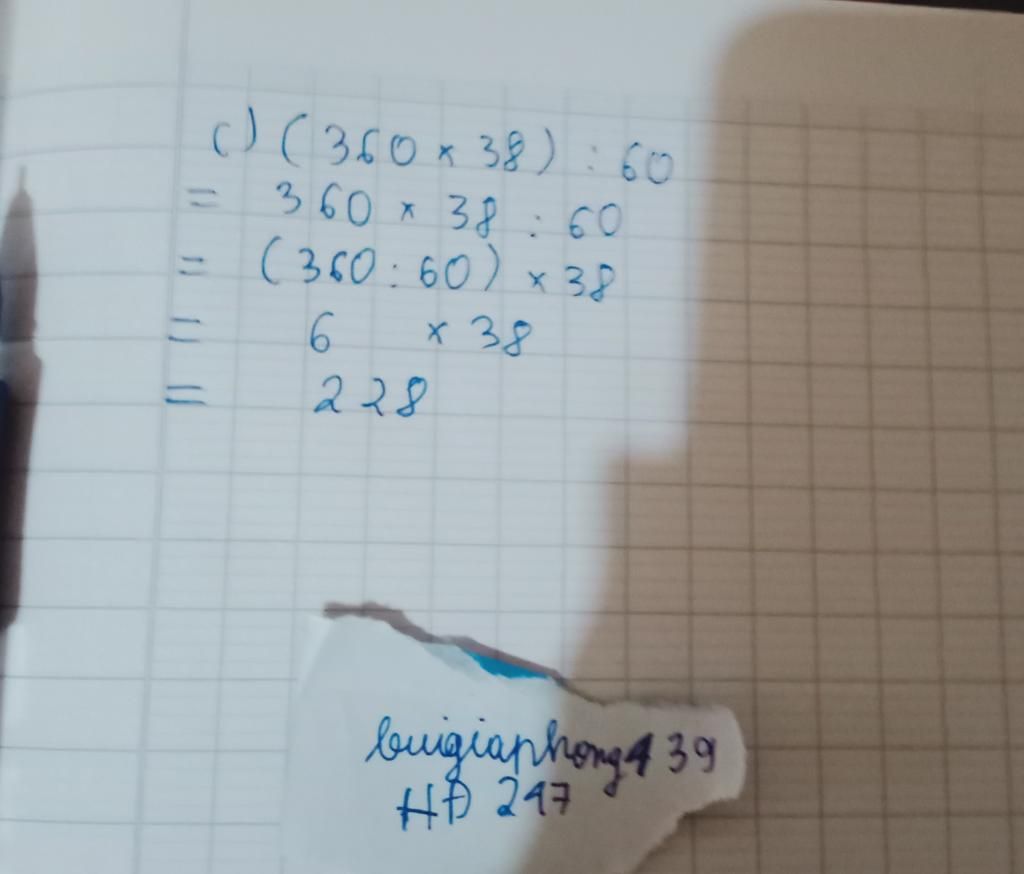 c) (360 × 38) : 60
= 360 × 38 : 60
= (360 : 60) × 38
= 6 × 38
= 228
buigiaphong439
HĐ 247